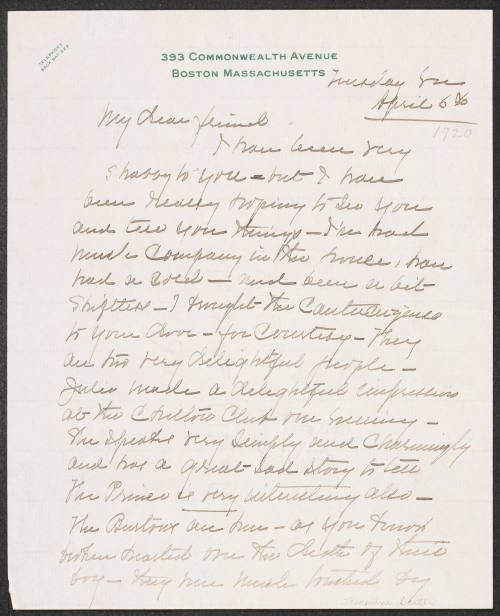 TELEPHONE
BACK BAY
393 COMMONWEALTH AVENUE
BOSTON MASSACHUSETTS
Tuesday Eve
April 6th
1920
My Dear friend
I have been very
shabby to you – but I have
been really hoping to see you
and tell you things – I've had
much Company in the house, have
had a cold – and been a bit
shiftless – I brought the Cantacuzenes
to your door – for Courtesy – They
are two very delightful people –
Julia made a delightful impression
at the Chilton Club one Evening –
She speaks very simply and Charmingly
and has a great sad story to tell
The Prince is very interesting also –
The Burtons are here – as you know
broken hearted over the death of their
boy – they were much touched by